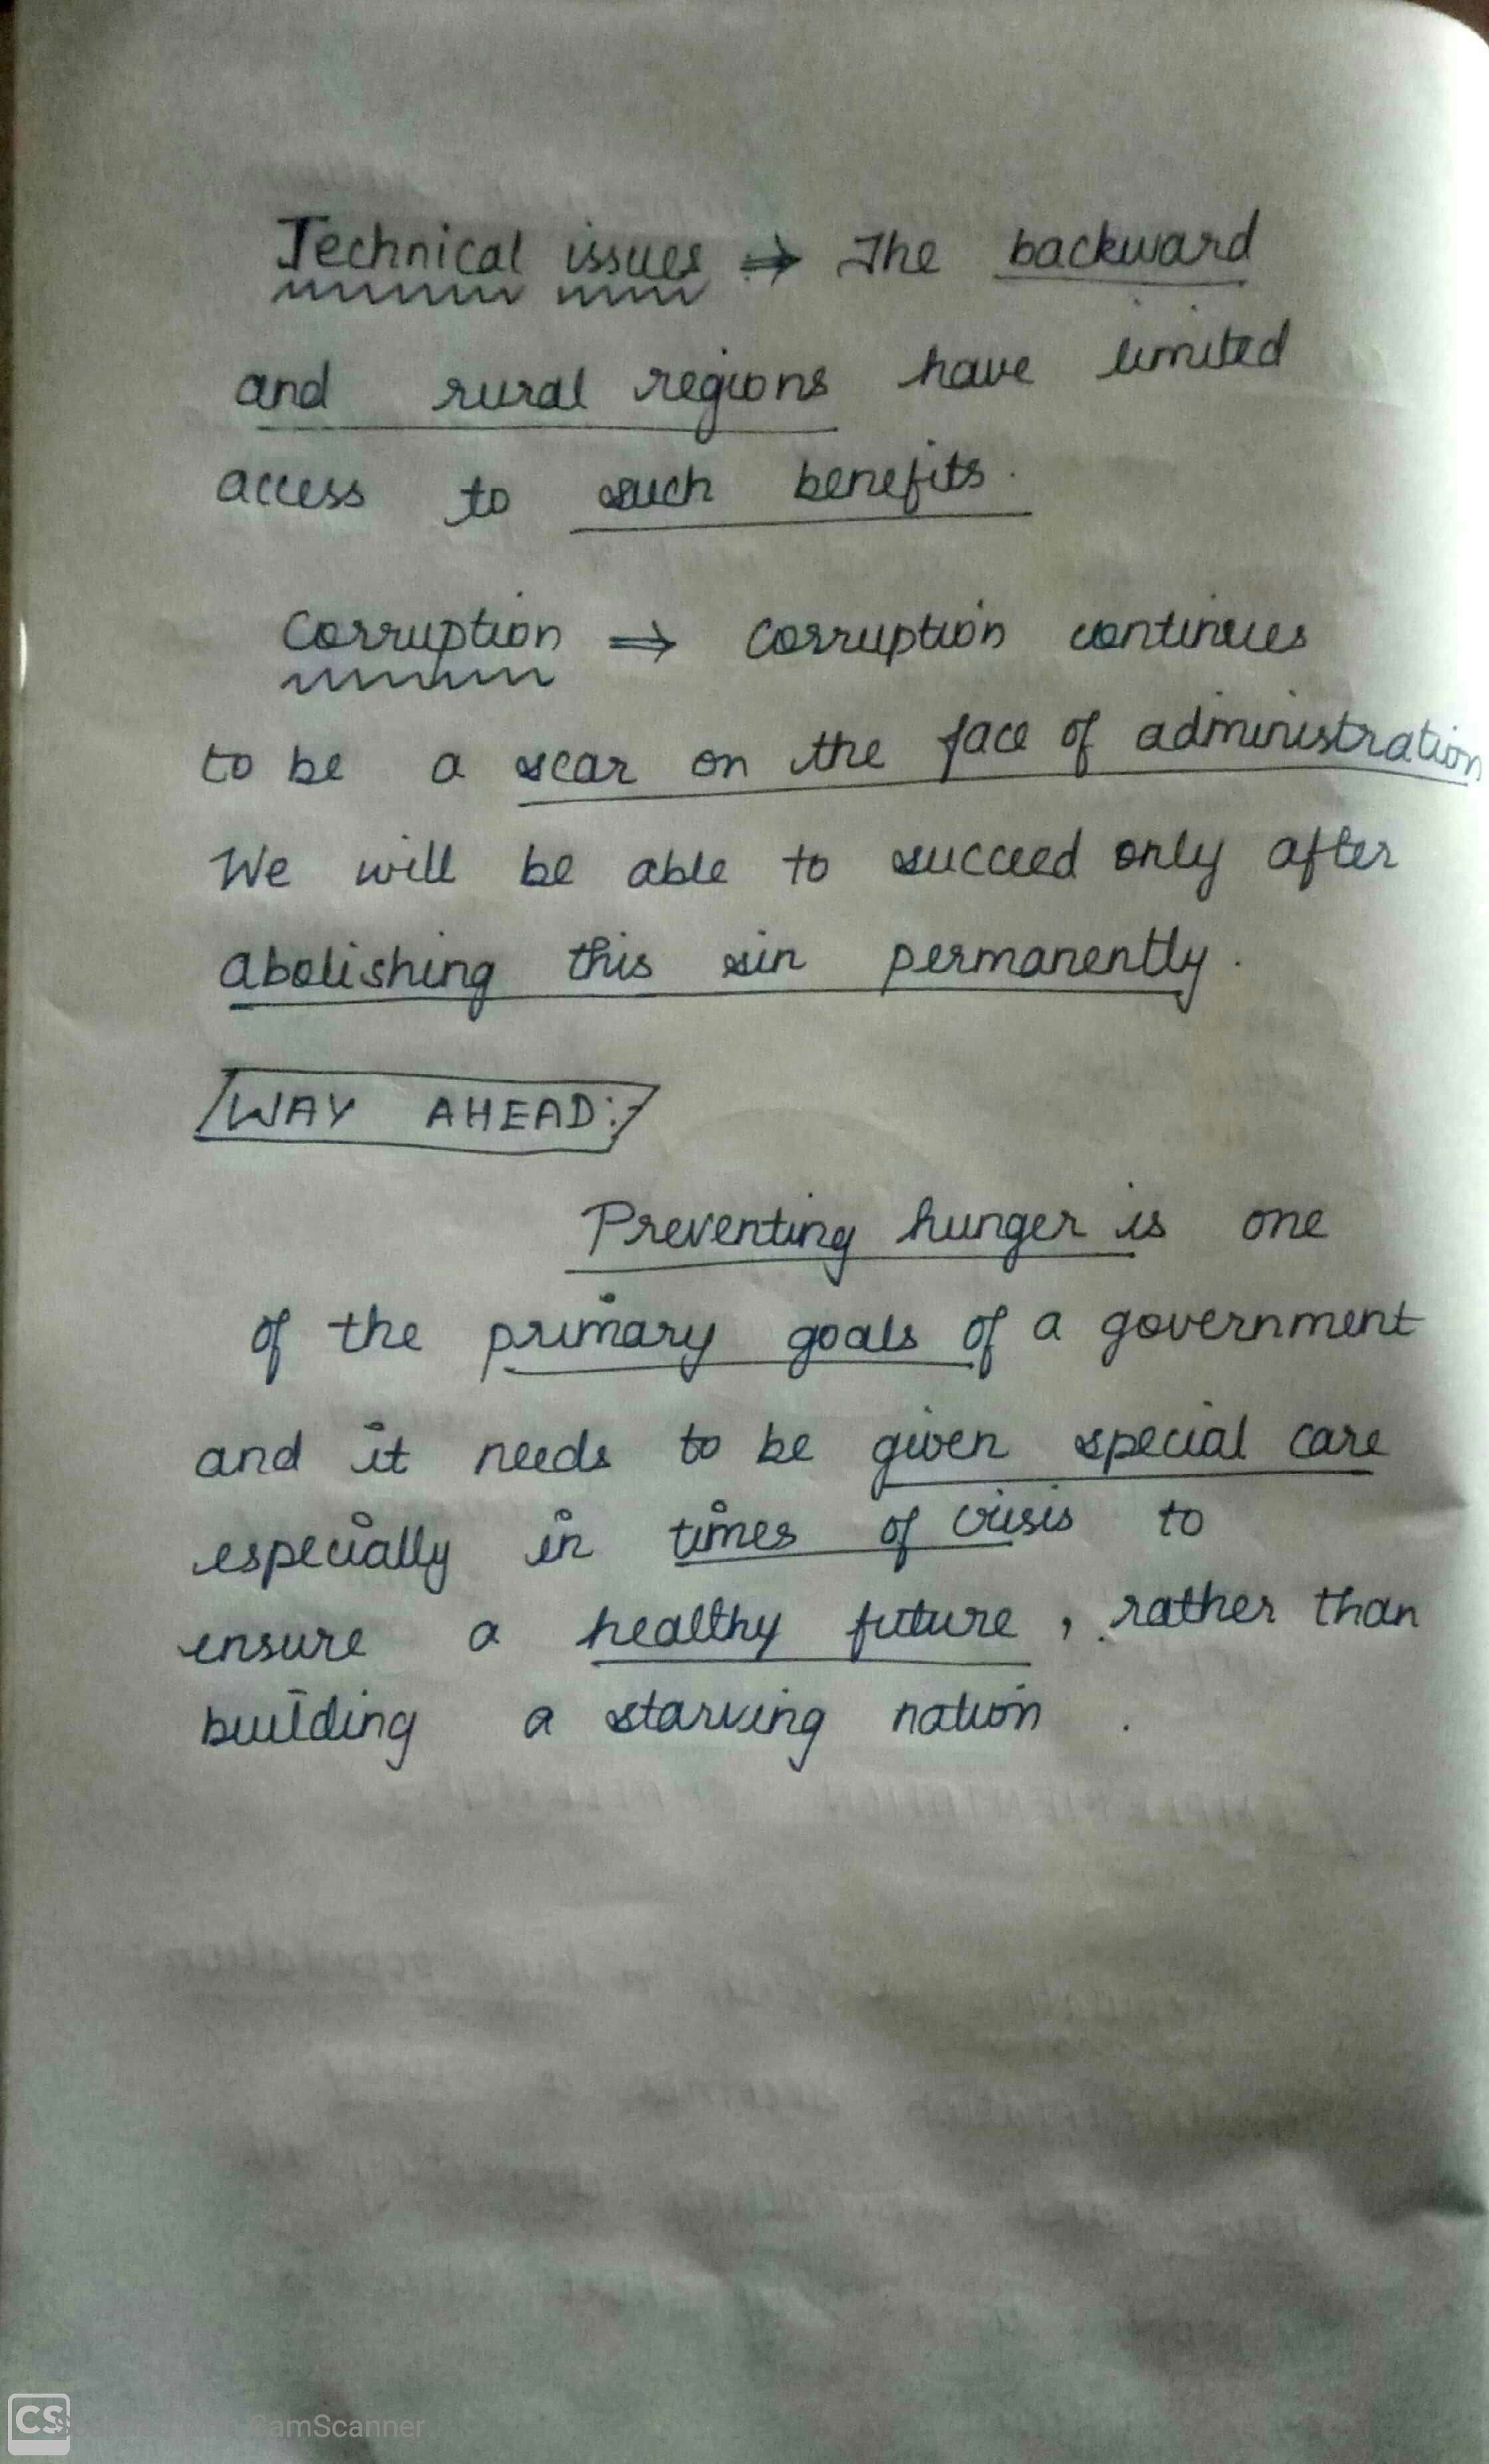 Technical issues ⇒ The backward
and rural regions have limited
access to such benefits.
Corruption ⇒ Corruption continues
to be a scar on the face of administration
We will be able to succeed only after
abolishing this sin permanently.
WAY AHEAD:-
Preventing hunger is one
of the primary goals of a government
and it needs to be given special care
especially in times of crisis to
ensure a healthy future, rather than
building a starving nation.
CS CamScanner